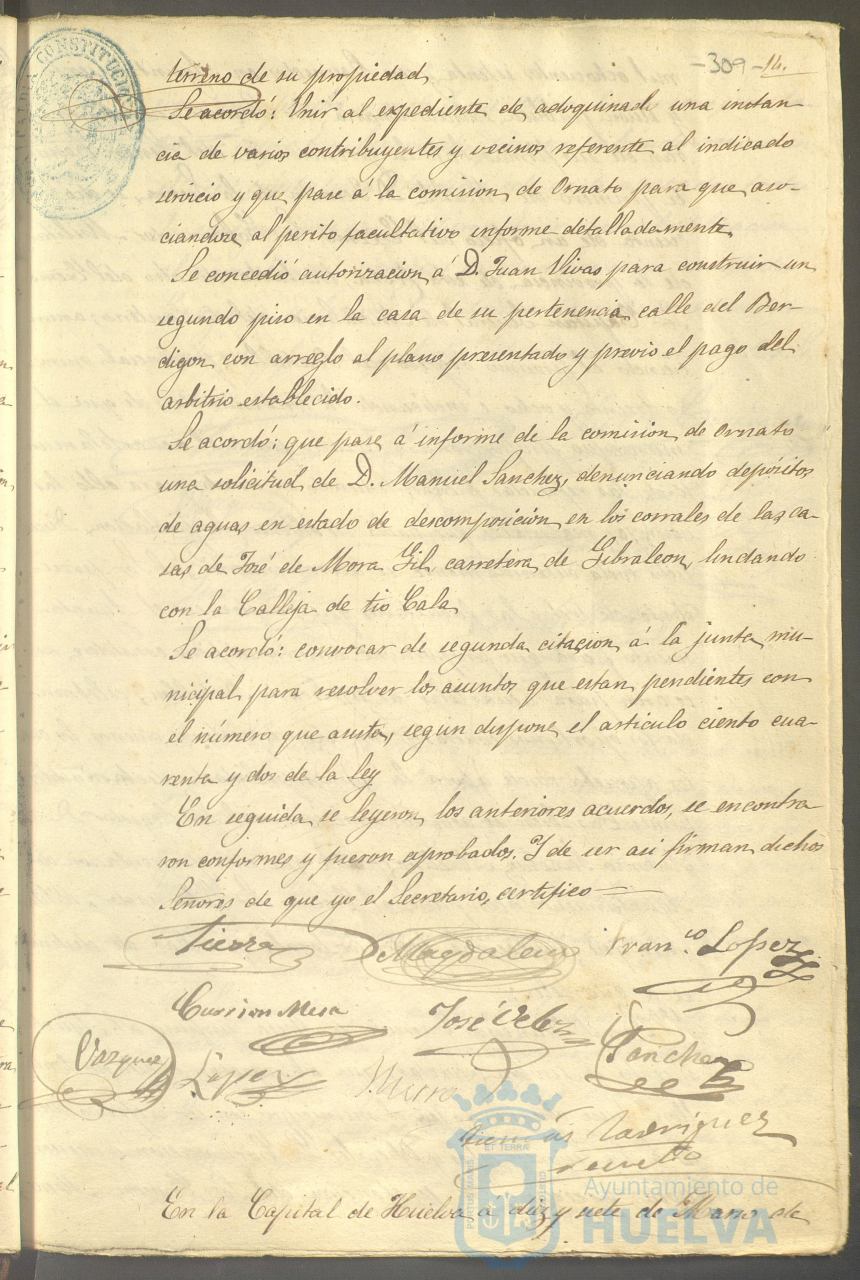 -309-14.
ALCALDIA CONSTITUCIONAL
terreno de su propiedad
Se acordó: Unir al expediente de adoquinado una instan
cia de varios contribuyentes y vecinos referente al indicado
servicio y que pase á la comision de Ornato para que aso-
ciandose al perito facultativo informe detalladamente
Se concedió autorizacion á D. Juan Vivas para construir un
segundo piso en la casa de su pertenencia calle del Ber-
digon con arreglo al plano presentado y previo el pago del
arbitrio establecido.
Se acordó: que pase á informe de la comision de Ornato
una solicitud de D. Manuel Sanchez, denunciando depósitos
de aguas en estado de descomposición en los corrales de las ca-
sas de José de Mora Gil carretera de Gibraleon, lindando
con la Calleja de tio Cala
Se acordó: convocar de segunda citacion á la junta mu-
nicipal para resolver los asuntos que estan pendientes con
el número que asista, segun dispone el articulo ciento cua-
renta y dos de la ley
En seguida se leyeron los anteriores acuerdos, se encontra
ron conformes y fueron aprobados. Y de ser asi firman dichos
Señores de que yo el Secretario, certifico
Tierra Magdalena Fran.co Lopez
Carrion Mesa José Velez Sanchez
Vazquez Lopez
Rodriguez
En la Capital de Huelva á diez y siete de Marzo de
PORTUS MARIS ET TERRÆ CUSTODIA
Ayuntamiento de
HUELVA